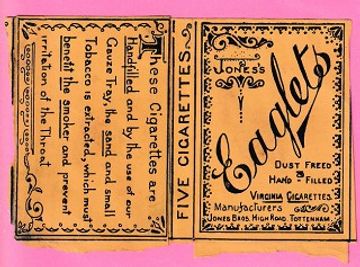 These Cigarettes are
Handfilled and by the use of our
Gauze Tray, the sand and small
Tobacco is extracted, which must
benefit the smoker and prevent
irritation of the Throat
FIVE CIGARETTES.
JONES'S
Eaglets
DUST FREED
& HAND-FILLED
VIRGINIA CIGARETTES.
Manufacturers
JONES BROS. HIGH ROAD. TOTTENHAM.